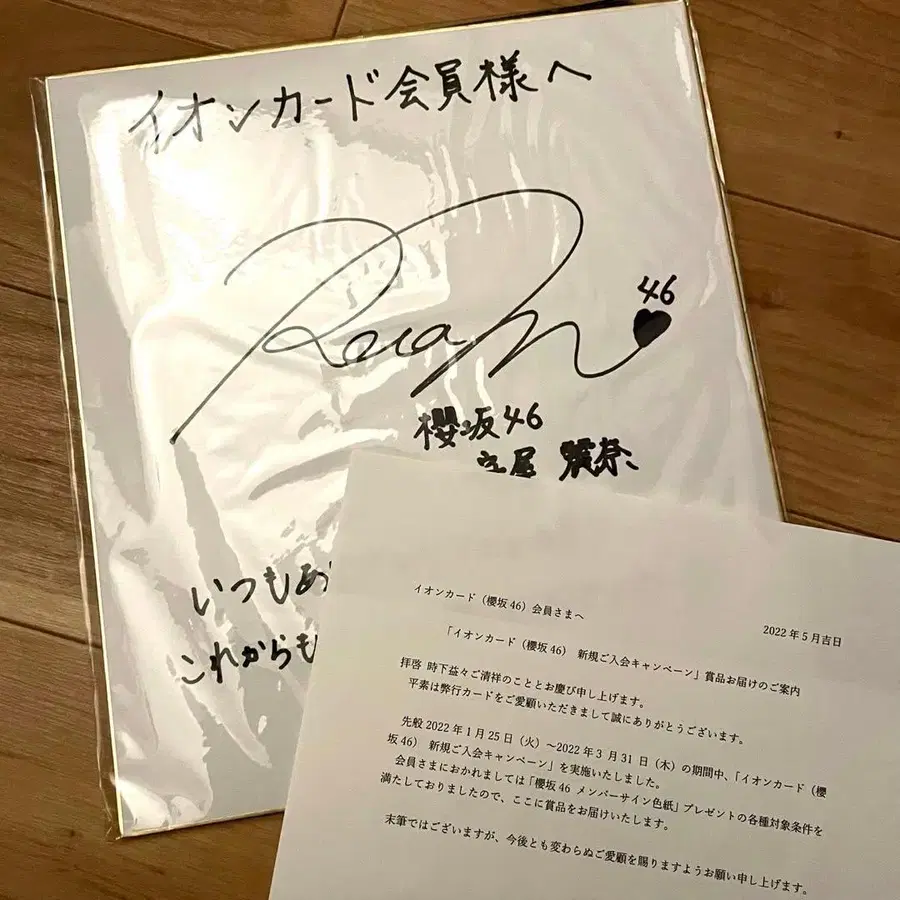 イオンカード会員様へ
Rena
46
櫻坂46
守屋 麗奈
いつもあ
これからも
イオンカード（櫻坂46）会員さまへ
2022年5月吉日
「イオンカード（櫻坂46） 新規ご入会キャンペーン」賞品お届けのご案内
拝啓 時下益々ご清祥のこととお慶び申し上げます。
平素は弊行カードをご愛顧いただきまして誠にありがとうございます。
先般2022年1月25日（火）～2022年3月31日（木）の期間中、「イオンカード（櫻
坂46） 新規ご入会キャンペーン」を実施いたしました。
会員さまにおかれましては「櫻坂46 メンバーサイン色紙」プレゼントの各種対象条件を
満たしておりましたので、ここに賞品をお届けいたします。
末筆ではございますが、今後とも変わらぬご愛顧を賜りますようお願い申し上げます。